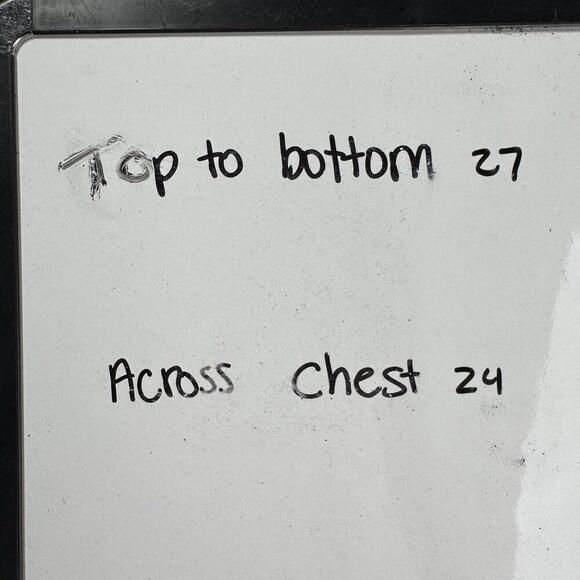 Top to bottom 27
Across Chest 24